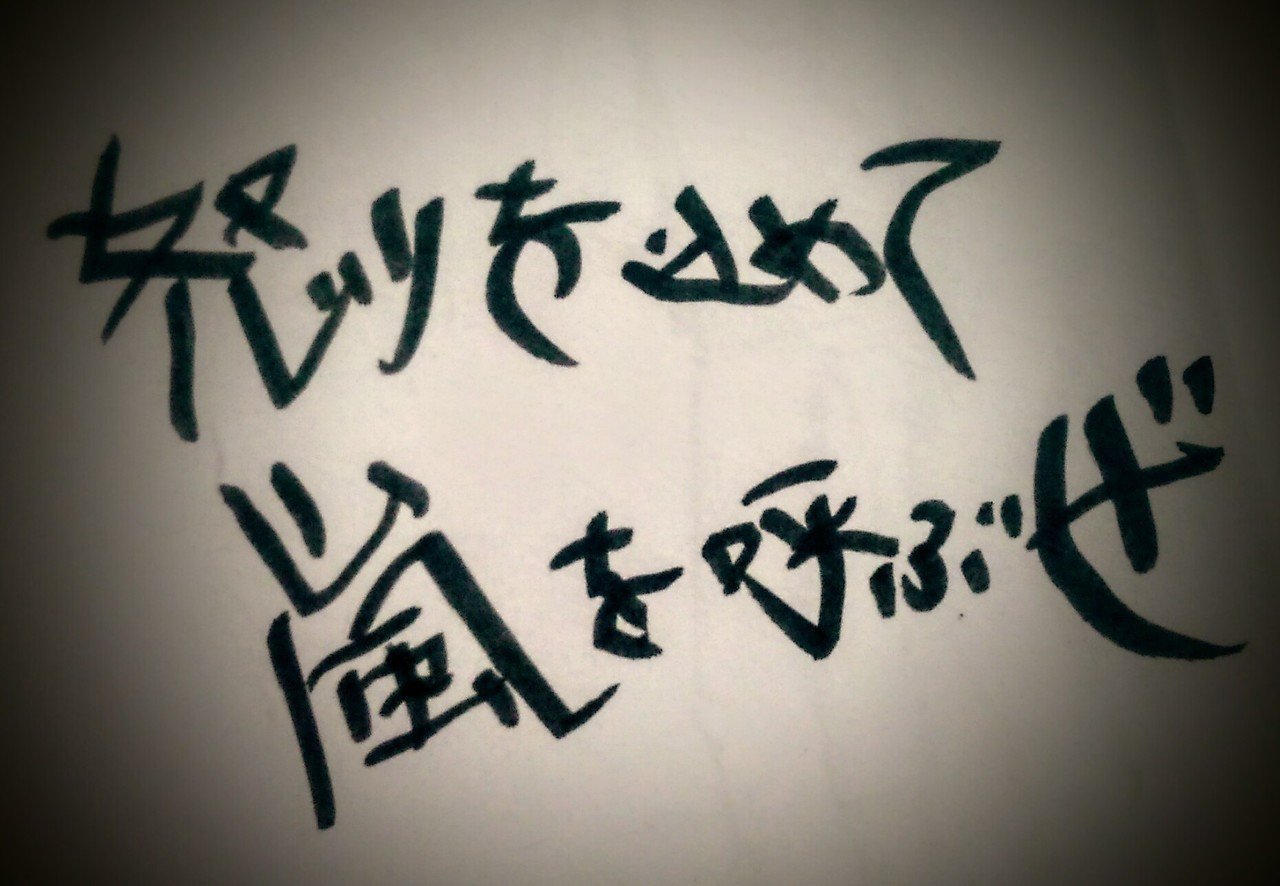 怒りを込めて
嵐を呼ぶぜ